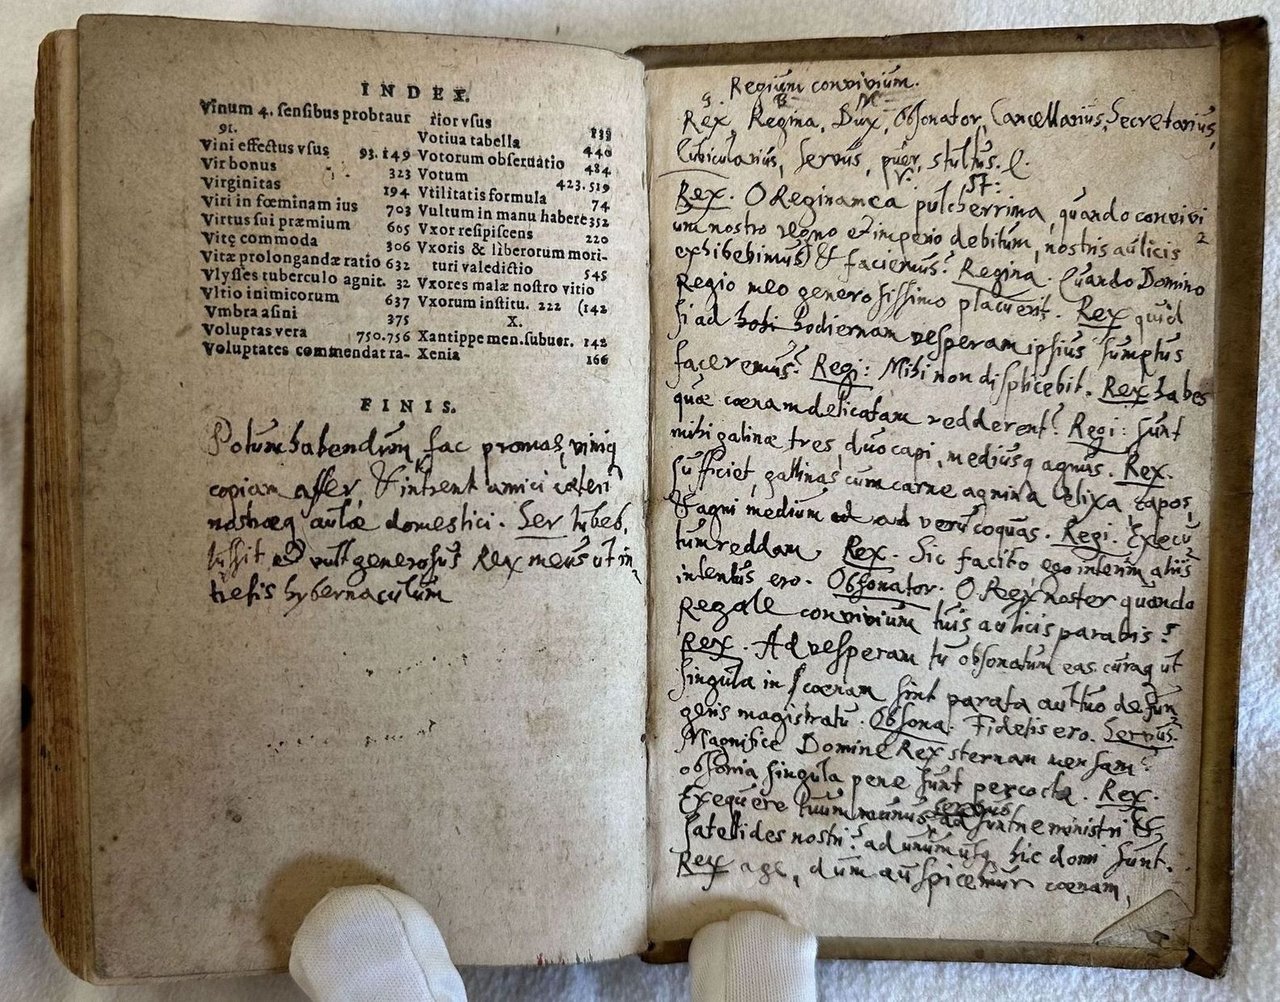 INDEX.
Vinum 4. ſenſibus probtaur
91.
Vini effectus vſus 93. 149
Vir bonus 323
Virginitas 194
Viri in fœminam ius 703
Virtus ſui præmium 605
Vitę commoda 306
Vitæ prolongandæ ratio 632
Vlyſſes tuberculo agnit. 32
Vltio inimicorum 637
Vmbra aſini 375
Voluptas vera 750.756
Voluptates commendat ra-
rior vſus 139
Votiua tabella 440
Votorum obſeruatio 484
Votum 423.519
Vtilitatis formula 74
Vultum in manu habere 352
Vxor reſipiſcens 220
Vxoris & liberorum mori-
turi valedictio 545
Vxores malæ noſtro vitio
Vxorum inſtitu. 222 (142
X.
Xantippe men.ſubuer. 142
Xenia 166
FINIS.
Potum habendum fac promas, viniq
copiam affer, & intrent amici cæteri
nostræq aulæ domestici. Ser Iubes,
Iussit et vult generosus Rex meus ut in
tretis hybernaculum
Regium convivium.
Rex, Regina, Dux, Obsonator, Cancellarius, Secretarius,
Cubicularius, Servus, puer, stultus.
Rex. O Regina mea pulcherrima, quando convivi
um nostro regno et imperio debitum, nostris aulicis
exhibebimus & faciemus? Regina. Quando Domino
Regio meo generosissimo placuerit. Rex quid
si ad hodiernam vesperam ipsius sumptus
faceremus? Regi: Mihi non displicebit. Rex habes
quæ cœnam delicatam redderent? Regi: sunt
mihi galinæ tres, duo capi, mediusq agnus. Rex.
sufficiet, gallinas cum carne agnina elixa, capos,
& agni medium ad veru coquas. Regi. Execu
tum reddam Rex. Sic facito ego interim aliis
intentus ero. Obsonator. O Rex noster quando
Regale convivium tuis aulicis parabis?
Rex. Ad vesperam tu obsonatum eas curaq ut
singula in cœnam sint parata aut tuo defun
geris magistratu. Obsona. Fidelis ero. Servus.
Magnifice Domine Rex sternam mensam?
obsonia singula pene sunt percocta. Rex.
Exequere tuum munus suntne ministri &
satellides nostri? ad unum usq hic domi sunt.
Rex age, dum auspicemur cœnam,